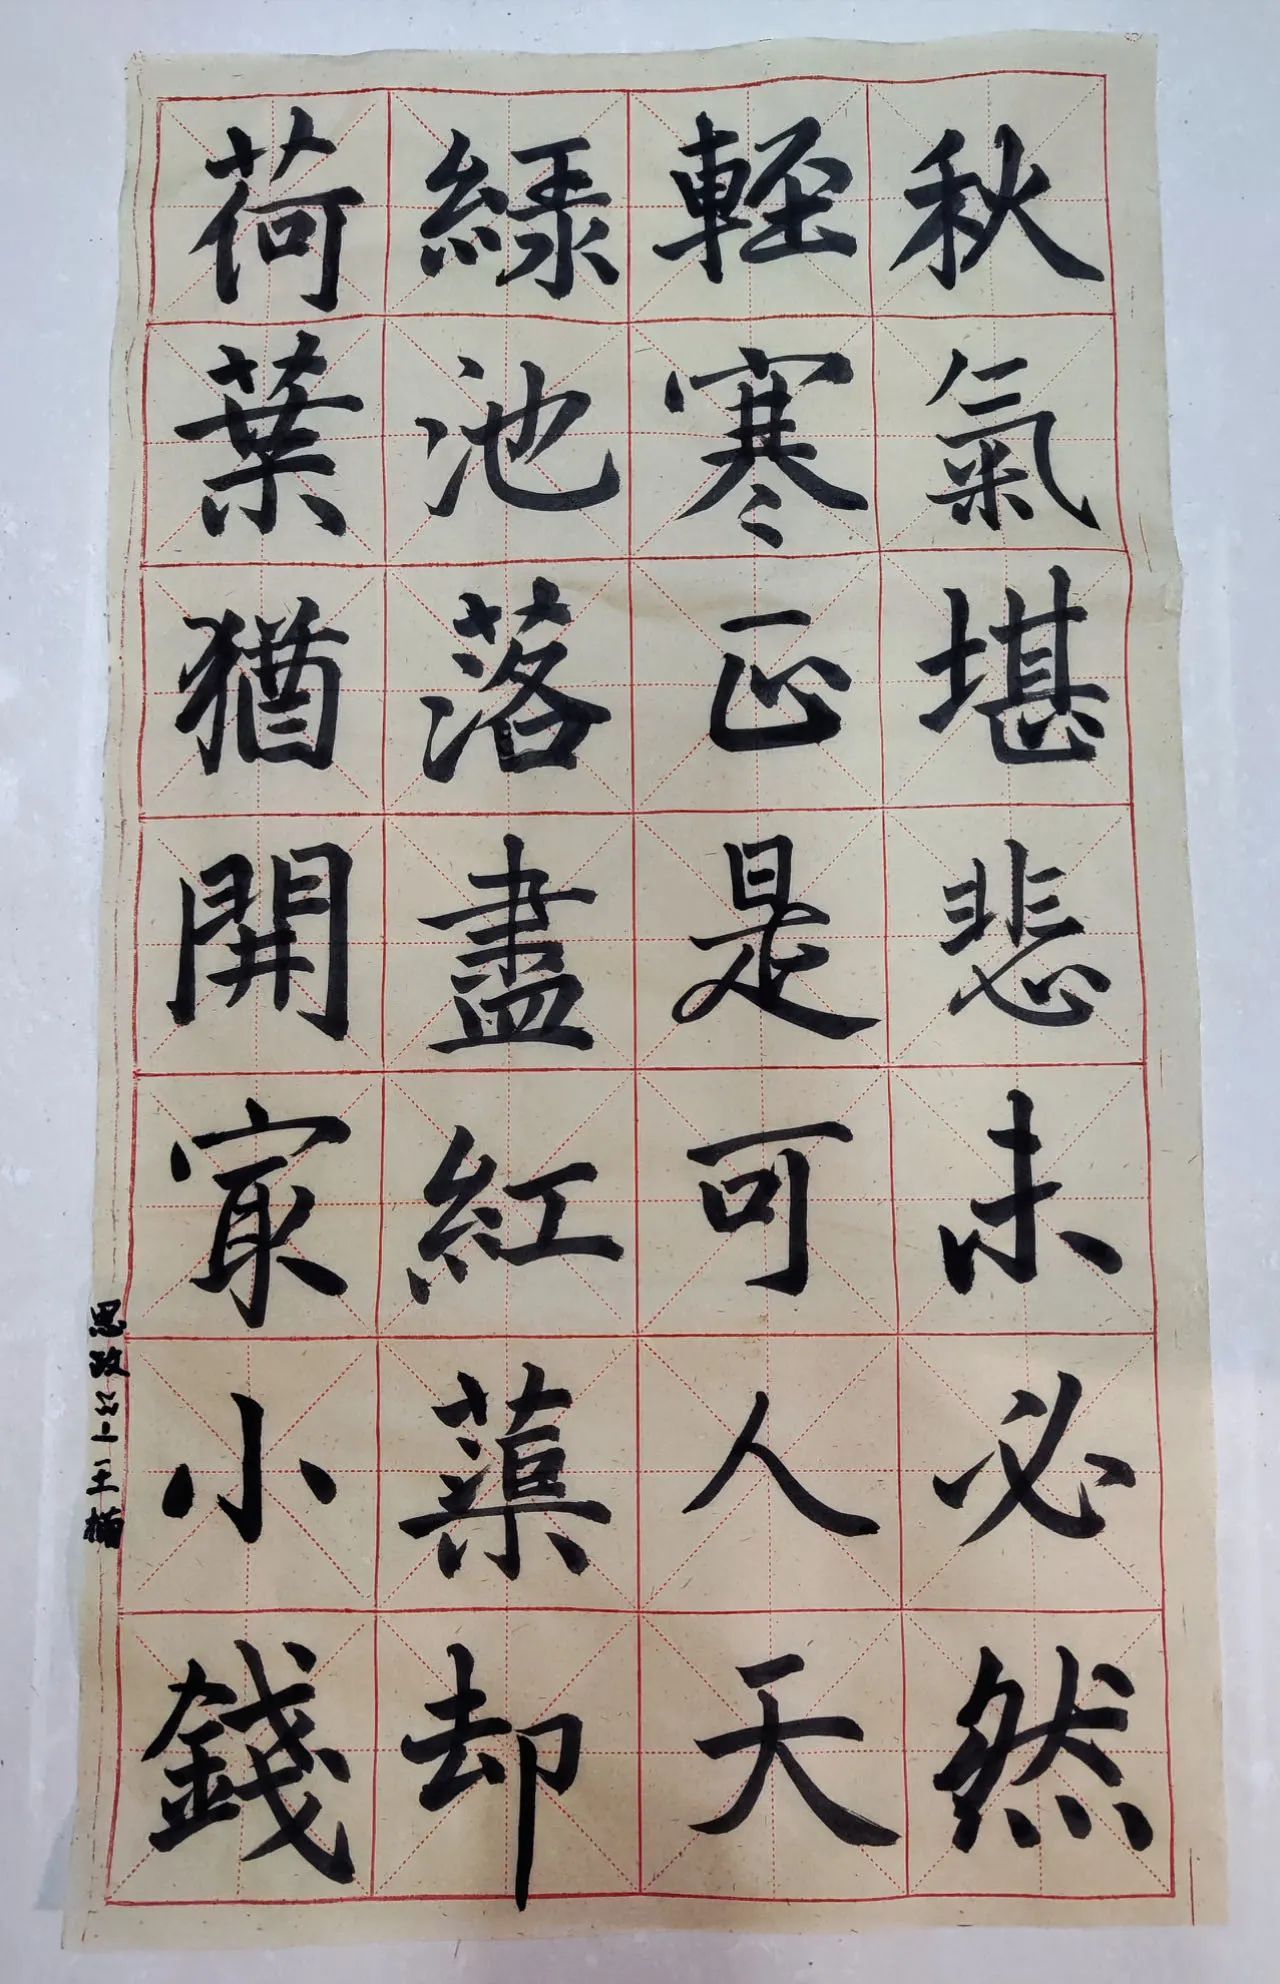 秋氣堪悲未必然
輕寒正是可人天
綠池落盡紅蕖却
荷葉猶開㝡小錢
思政202王楠